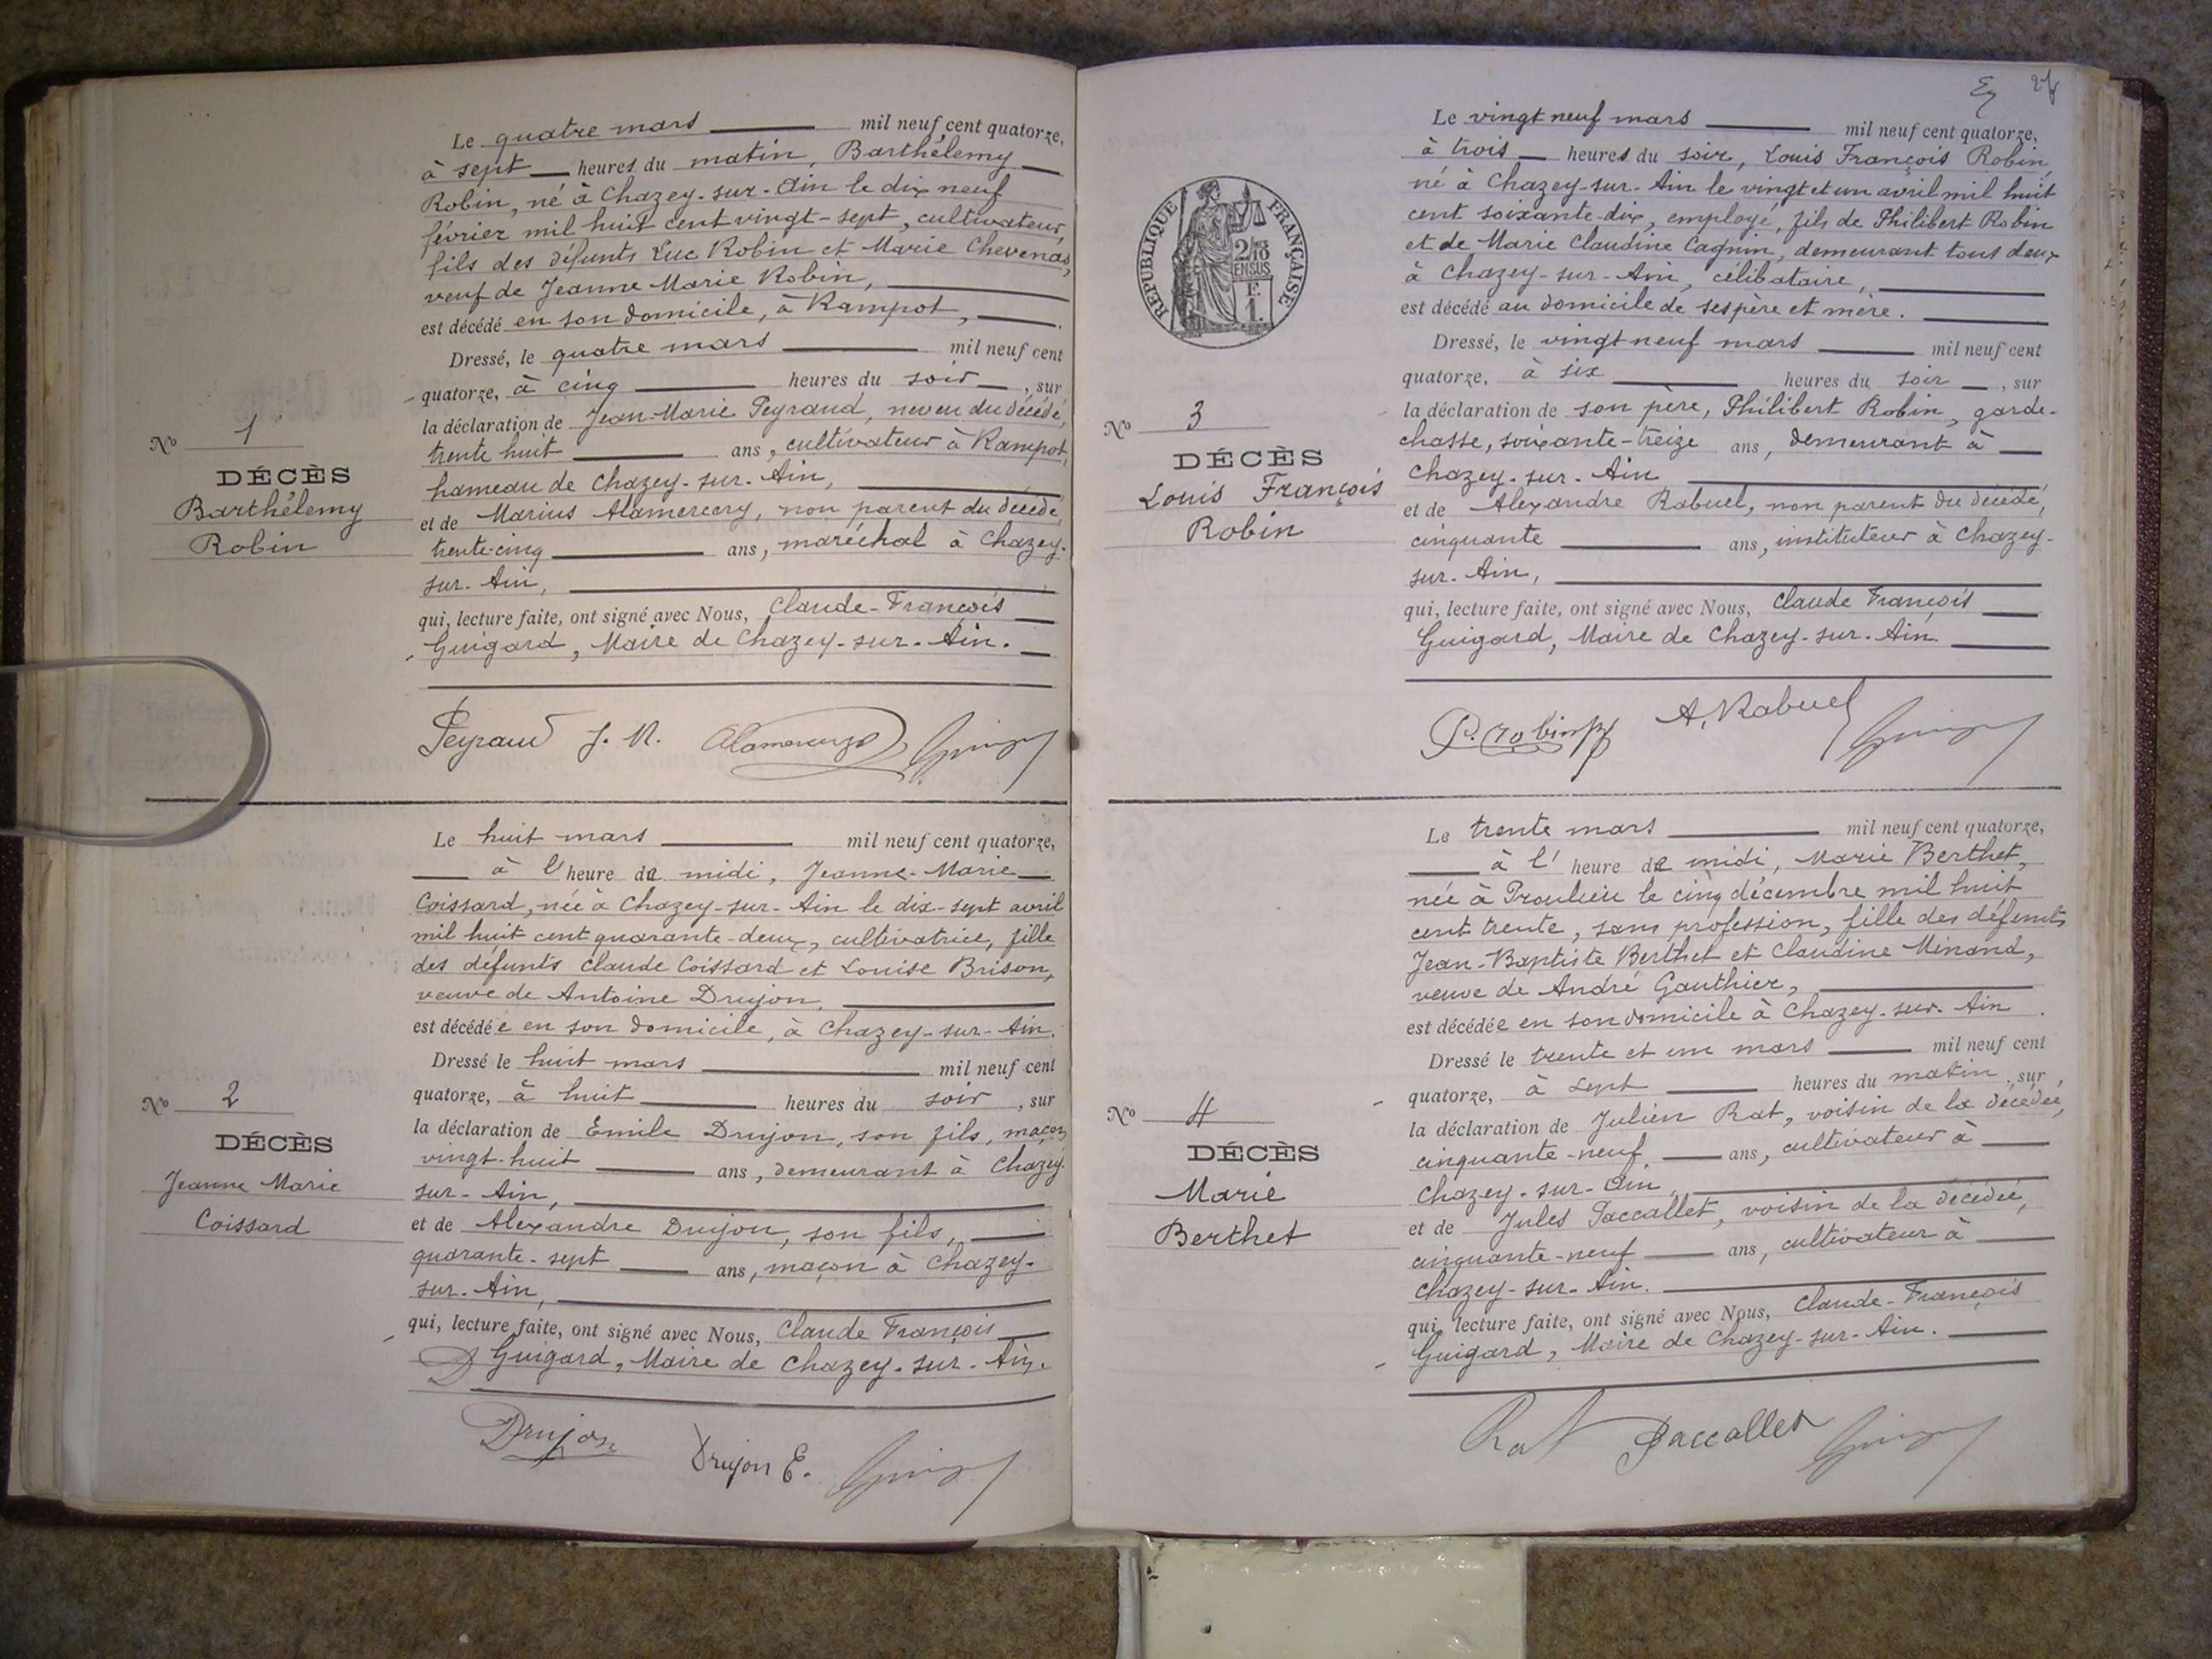 Le quatre mars mil neuf cent quatorze,
à sept heures du matin, Barthélemy
Robin, né à Chazey-sur-Ain le dix neuf
février mil huit cent vingt-sept, cultivateur,
fils des défunts Luc Robin et Marie Chevenas,
veuf de Jeanne Marie Robin,
est décédé en son domicile, à Rampot,
Dressé, le quatre mars mil neuf cent
quatorze, à cinq heures du soir, sur
la déclaration de Jean-Marie Peyraud, neveu du décédé,
trente huit ans, cultivateur à Rampot,
hameau de Chazey-sur-Ain,
et de Marius Alamercery, non parent du décédé,
trente-cinq ans, maréchal à Chazey-
sur-Ain,
qui, lecture faite, ont signé avec Nous, Claude-François
Guigard, Maire de Chazey-sur-Ain.
Nº 1
DÉCÈS
Barthélemy
Robin
Peyraud J. M.
Le huit mars mil neuf cent quatorze,
à l'heure de midi, Jeanne-Marie
Coissard, née à Chazey-sur-Ain le dix-sept avril
mil huit cent quarante-deux, cultivatrice, fille
des défunts Claude Coissard et Louise Brison,
veuve de Antoine Drujon,
est décédée en son domicile, à Chazey-sur-Ain.
Dressé le huit mars mil neuf cent
quatorze, à huit heures du soir, sur
la déclaration de Emile Drujon, son fils, maçon
vingt-huit ans, demeurant à Chazey-
sur-Ain,
et de Alexandre Drujon, son fils,
quarante-sept ans, maçon à Chazey-
sur-Ain,
qui, lecture faite, ont signé avec Nous, Claude François
Guigard, Maire de Chazey-sur-Ain.
Nº 2
DÉCÈS
Jeanne Marie
Coissard
Drujon
Drujon E.
RÉPUBLIQUE FRANÇAISE
2/10
EN SUS
F.
1.
Le vingt neuf mars mil neuf cent quatorze,
à trois heures du soir, Louis François Robin,
né à Chazey-sur-Ain le vingt et un avril mil huit
cent soixante-dix, employé, fils de Philibert Robin
et de Marie Claudine Cagnin, demeurant tous deux
à Chazey-sur-Ain, célibataire,
est décédé au domicile de ses père et mère.
Dressé, le vingt neuf mars mil neuf cent
quatorze, à six heures du soir, sur
la déclaration de son père, Philibert Robin, garde-
chasse, soixante-treize ans, demeurant à
Chazey-sur-Ain
et de Alexandre Rabuel, non parent du décédé,
cinquante ans, instituteur à Chazey-
sur-Ain,
qui, lecture faite, ont signé avec Nous, Claude François
Guigard, Maire de Chazey-sur-Ain.
Nº 3
DÉCÈS
Louis François
Robin
P. robin
A. Rabuel
Le trente mars mil neuf cent quatorze,
à l'heure de midi, Marie Berthet,
née à Proulieu le cinq décembre mil huit
cent trente, sans profession, fille des défunts
Jean-Baptiste Berthet et Claudine Minand,
veuve de André Gauthier,
est décédée en son domicile à Chazey-sur-Ain.
Dressé le trente et un mars mil neuf cent
quatorze, à sept heures du matin, sur
la déclaration de Julien Rat, voisin de la décédée,
cinquante-neuf ans, cultivateur à
Chazey-sur-Ain,
et de Jules Paccallet, voisin de la décédée,
cinquante-neuf ans, cultivateur à
Chazey-sur-Ain.
qui, lecture faite, ont signé avec Nous, Claude-François
Guigard, Maire de Chazey-sur-Ain.
Nº 4
DÉCÈS
Marie
Berthet
Rat Paccallet